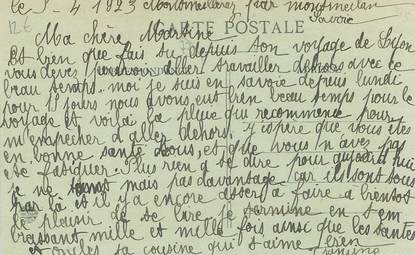 le 5 - 4 1923 par montmelian
Savoie
126
CARTE POSTALE
Ma chère
Et bien que fais tu depuis ton voyage de
vous devez pouvoir aller travailler dehors avec ce
beau temps. moi je suis en savoie depuis lundi
pour jours nous avons eut bien beau temps pour le
voyage et voila la pluie qui recommence pour
m'empecher d'aller dehors. J'espère que vous etes
en bonne santé tous, et que vous n'avez pas
ete fatiguer. Plus rien a te dire pour aujourd'hui
je ne mais pas davantage car ils sont sous
par là et il y a encore assez a faire a bientot
le plaisir de te lire je termine en t'em
brassant mille et mille fois ainsi que les tantes
et oncles ta cousine qui t'aime bien